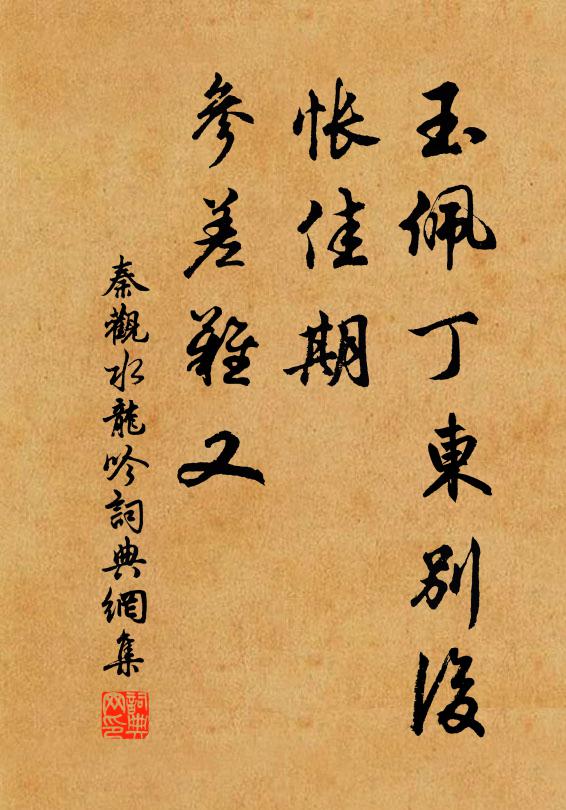 玉佩丁東別後
悵佳期
參差難又
秦觀水龍吟詞典網集
詞典网印